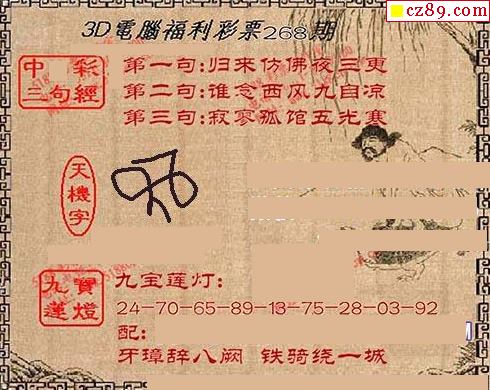 cz89.com
3D電腦福利彩票268期
中彩
三句經
第一句:归来仿佛夜三更
第二句:谁念西风九自凉
第三句:寂寥孤馆五光寒
天機字
九寶
蓮燈
九宝莲灯:
24-70-65-89-13-75-28-03-92
配:
牙璋辞八阙 铁骑绕一城